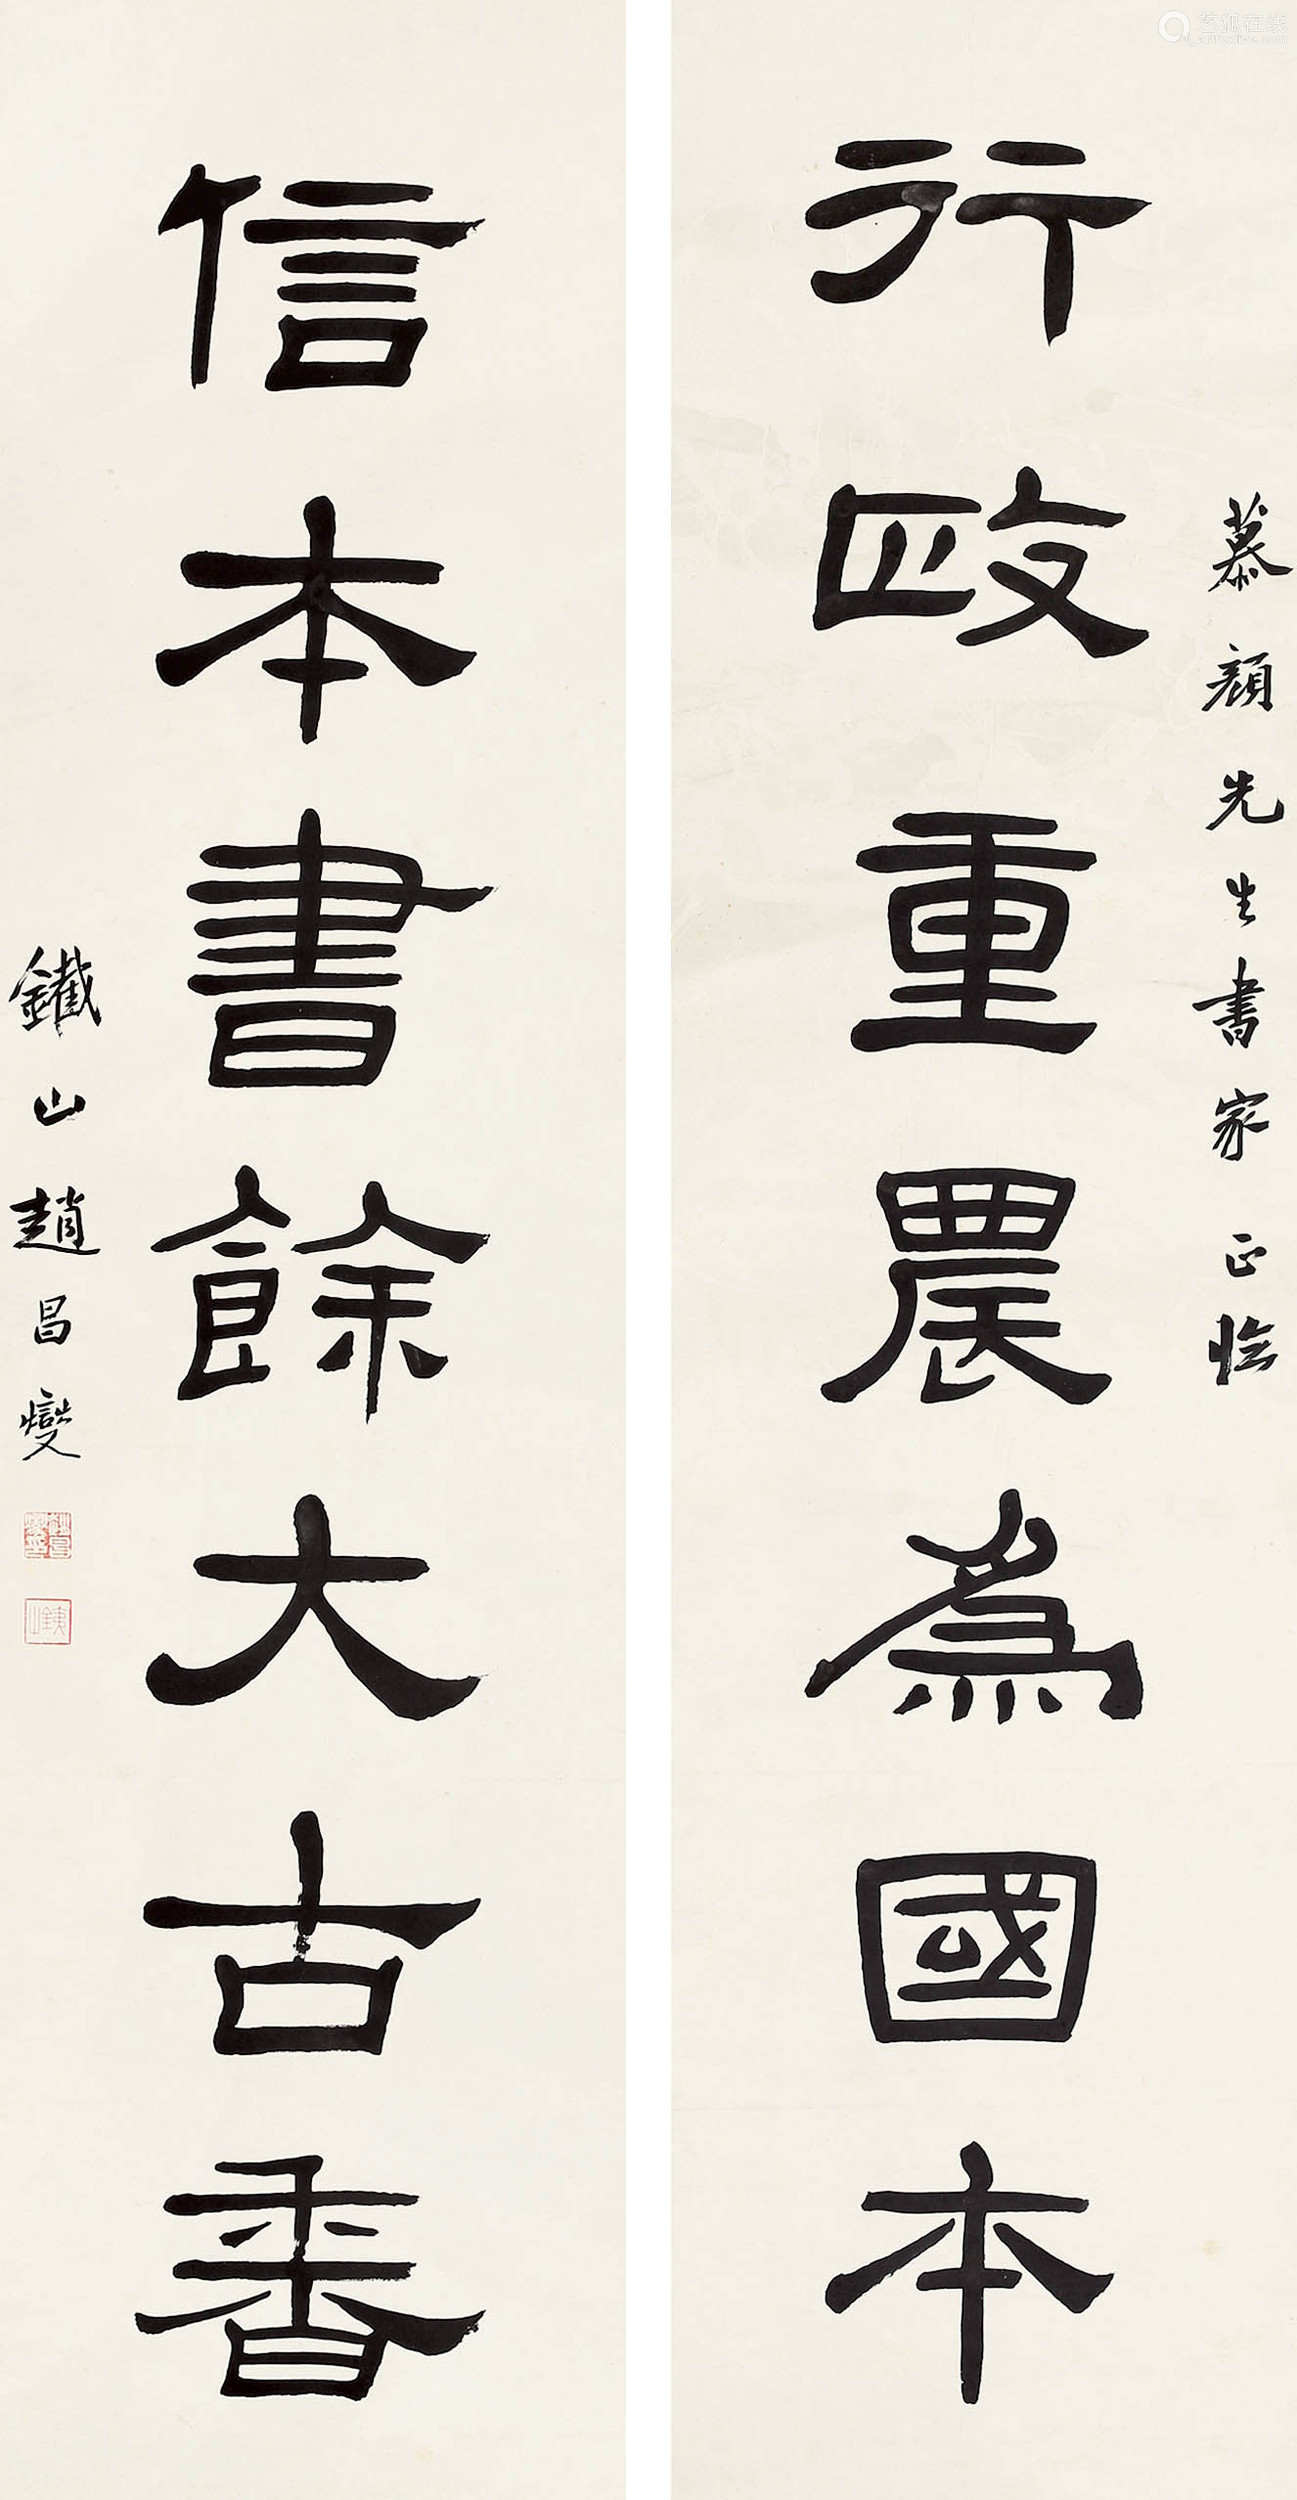 慕顏先生書家正臨
行政重農為國本
信本書餘大古香
鐵山趙昌燮
艺狐在线